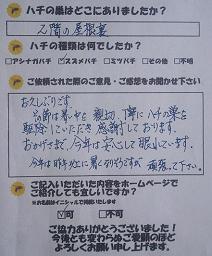 ハチの巣はどこにありましたか?
2階の屋根裏
ハチの種類は何でしたか?
□アシナガバチ ☑スズメバチ □ミツバチ □その他 □不明
ご依頼された際のご意見・ご感想をお聞かせ下さい
お久しぶりです
暑い中 親切、丁寧に ハチの巣を
駆除していただき 感謝しております。
おかげさまで、今年は安心して 眠っています。
今年は昨年以上に暑くなりそうですが 頑張って下さい。
ご記入いただいた内容をホームページで
ご紹介しても宜しいですか?
※お名前はイニシャルで掲載いたします
☑可 □不可
ご協力ありがとうございました!
今後とも変わらぬご愛顧のほど
よろしくお願い申し上げます。